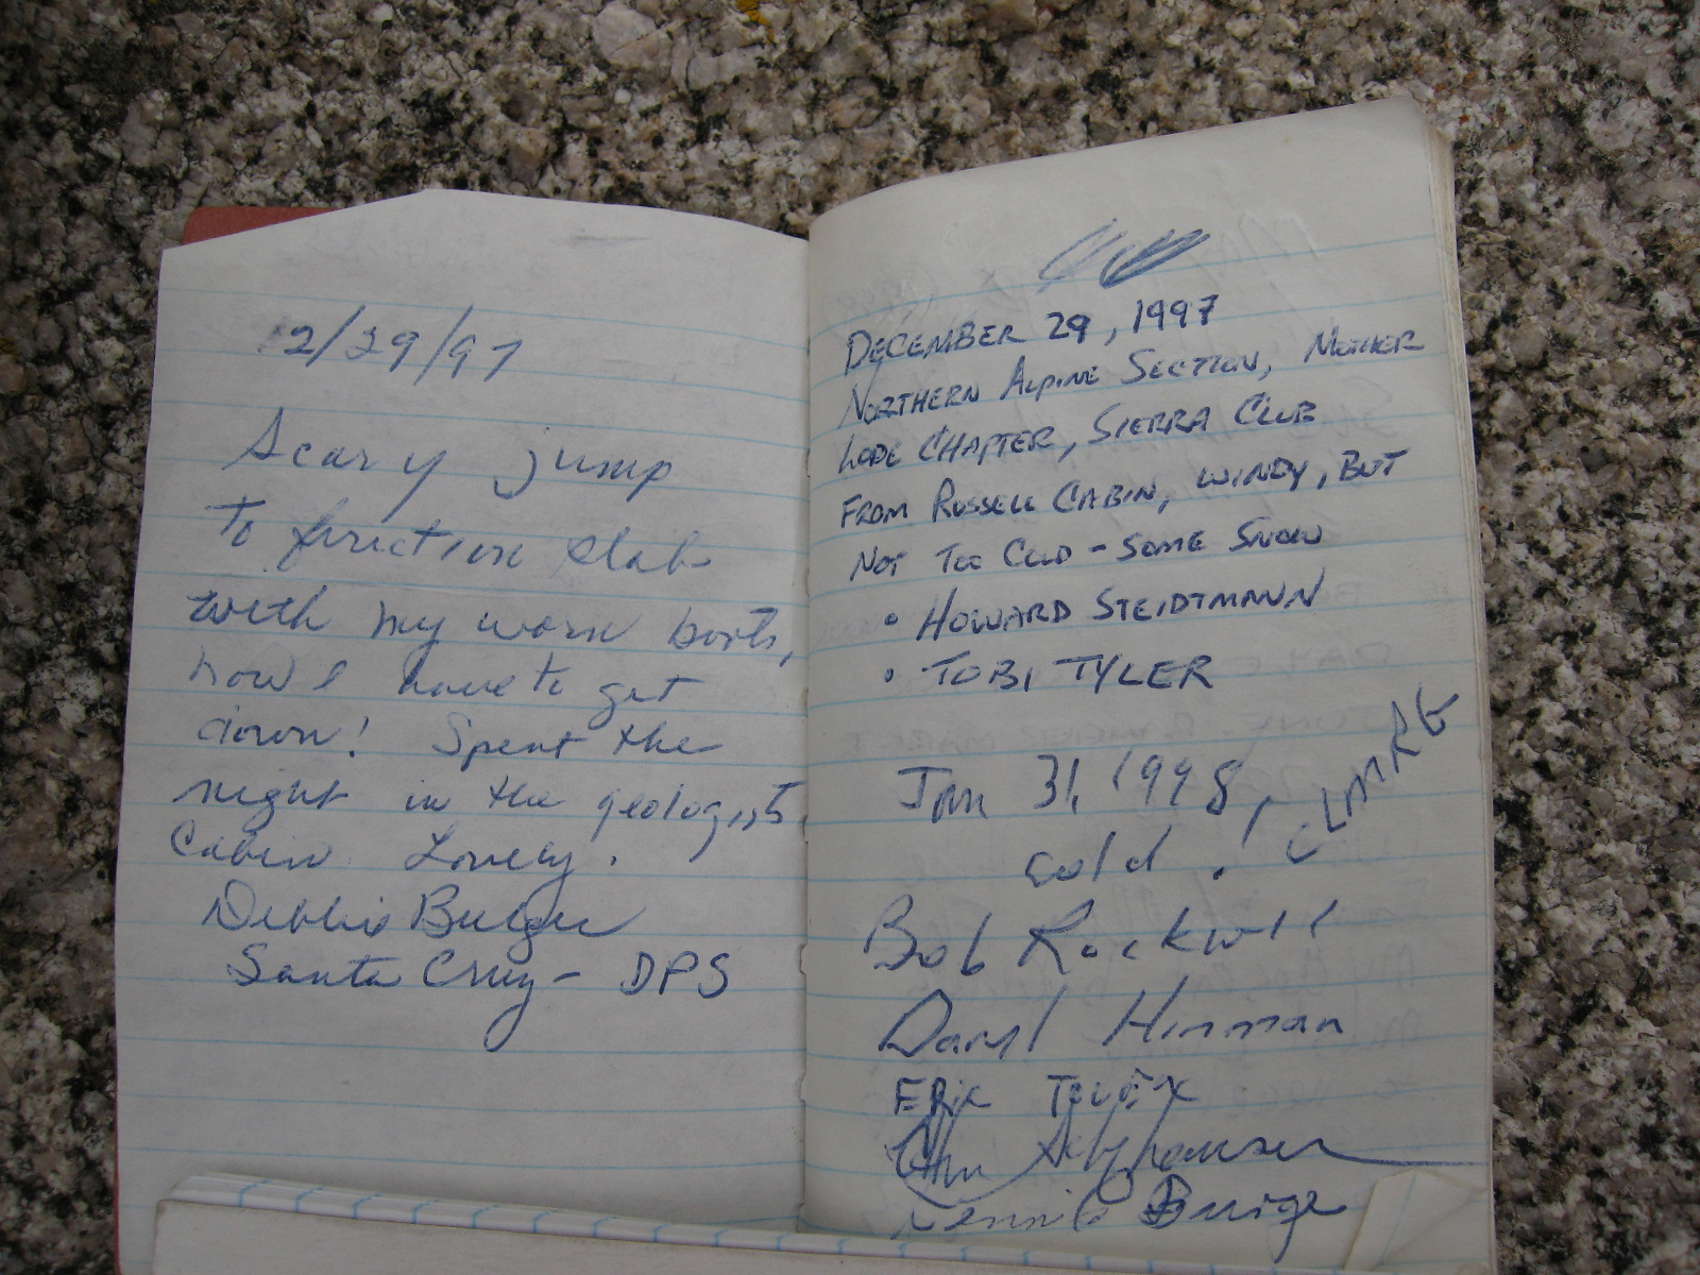 12/29/97
Scary jump
to friction slab
with my worn boots,
now I have to get
down! Spent the
night in the geologists
Cabin. Lovely.
Debbie Bulger
Santa Cruz - DPS
DECEMBER 29, 1997
NORTHERN ALPINE SECTION, MOTHER
LODE CHAPTER, SIERRA CLUB
FROM RUSSELL CABIN, WINDY, BUT
NOT TOO COLD - SOME SNOW
• HOWARD STEIDTMANN
• TOBI TYLER
Jan 31, 1998,
cold! CLARRE
Bob Rockwell
Daryl Hinman
ERIC
Dennis Burge